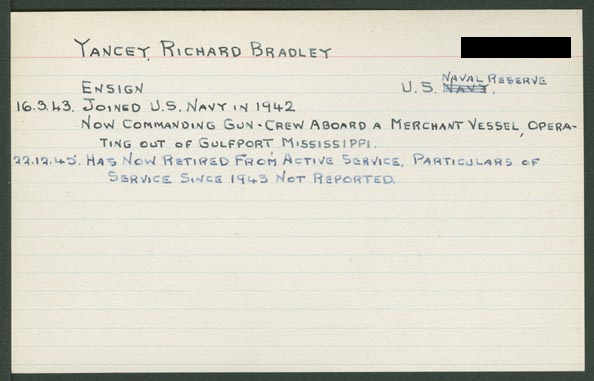 YANCEY, RICHARD BRADLEY
NAVAL RESERVE
ENSIGN U.S. NAVY.
16.3.43. JOINED U.S. NAVY IN 1942
NOW COMMANDING GUN-CREW ABOARD A MERCHANT VESSEL, OPERA-
TING OUT OF GULFPORT MISSISSIPPI.
22.12.45. HAS NOW RETIRED FROM ACTIVE SERVICE. PARTICULARS OF
SERVICE SINCE 1943 NOT REPORTED.